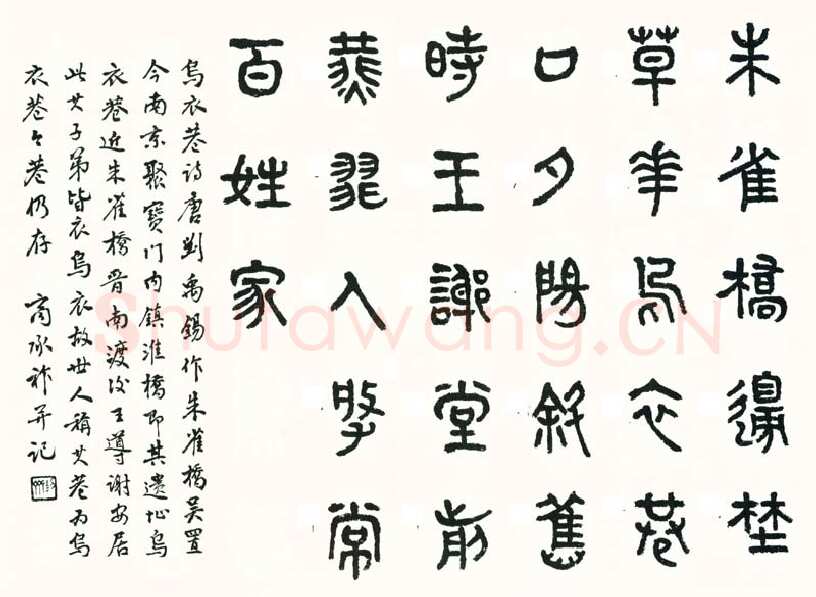 朱雀橋邊埜
草華烏衣巷
口夕陽斜舊
時王謝堂前
燕飛入尋常
百姓家
烏衣巷詩唐劉禹錫作朱雀橋吳置
今南京聚寶門內鎮淮橋即其遺址烏
衣巷近朱雀橋晉南渡後王導謝安居
此其子弟皆衣烏衣故世人稱其巷為烏
衣巷々巷仍存 商承祚并記
Shufawang.CN